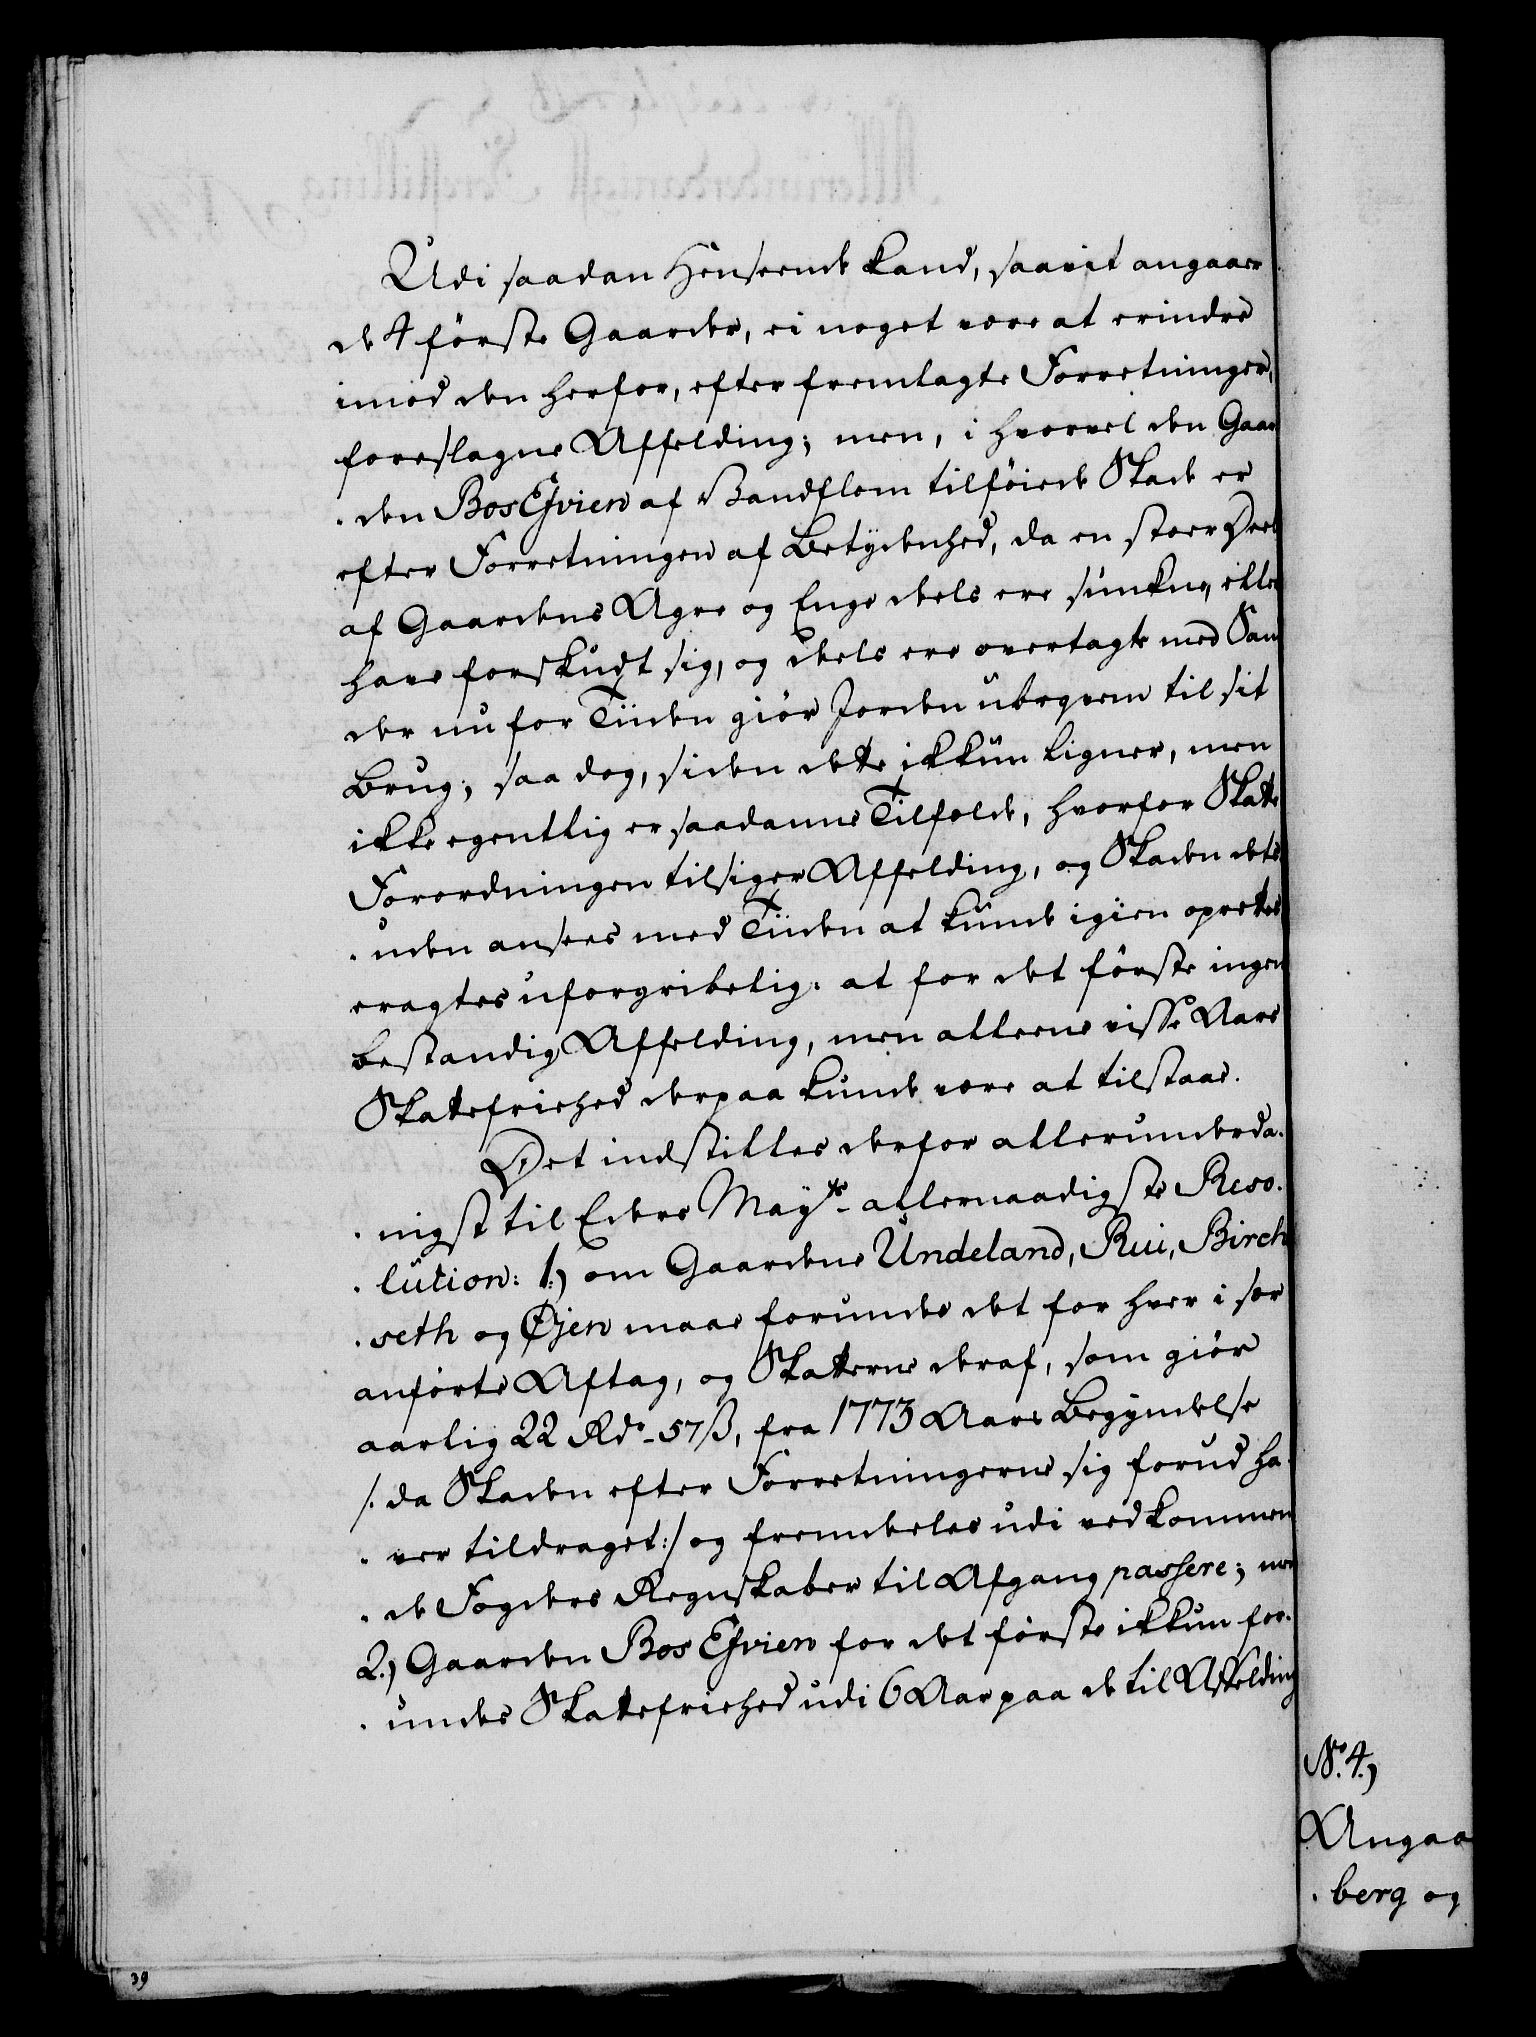 Udi saadan Henseende kand, saavit angaaer
de 4 förste Gaarder, ei noget være at erindre
imod den herfor, efter fremlagte Forretninger,
foreslagne Affelding; men, i hvorvel den Gaar
. den Bos Esvien af Vandflom tilföiede Skade er
efter Forretningen af Betydenhed, da en stoer Deel
af Gaardens Agre og Enge deels ere sunkne, eller
have forskudt sig, og deels ere overlagte med San
der nu for Tiiden giör Jorden ubeqvem til sit
Brug; saa dog, siden dette ikkun ligner, men
ikke egentlig er saadanne Tilfælde, hvorfor Skatte
Forordningen tilsiger Affelding, og Skaden des
. uden ansees med Tiiden at kunde igien oprettes
eragtes uforgribelig: at for det förste ingen
bestandig Affelding, men alleene visse Aars
Skattefriehed derpaa kunde være at tilstaae.
Det indstilles derfor allerunderda.
. nigst til Eders Mayts allernaadigste Reso.
. lution: 1.) om Gaardene Undeland, Rui, Birch
. seth og Öjen maae forundes det for hver i sær
anförte Aftag, og Skatterne deraf, som giör
aarlig 22 Rdr 57 ß, fra 1773 Aars Begyndelse
/: da Skaden efter Forretningerne sig forud ha.
. ver tildraget :/ og fremdeles udi vedkommen
. de Fogders Regnskaber til Afgang passere; men
2.) Gaarden Bos Esvien for det förste ikkun for.
. undes Skattefriehed udi 6 Aar paa de til Affelding
No. 4.)
Angaa
. berg og
39